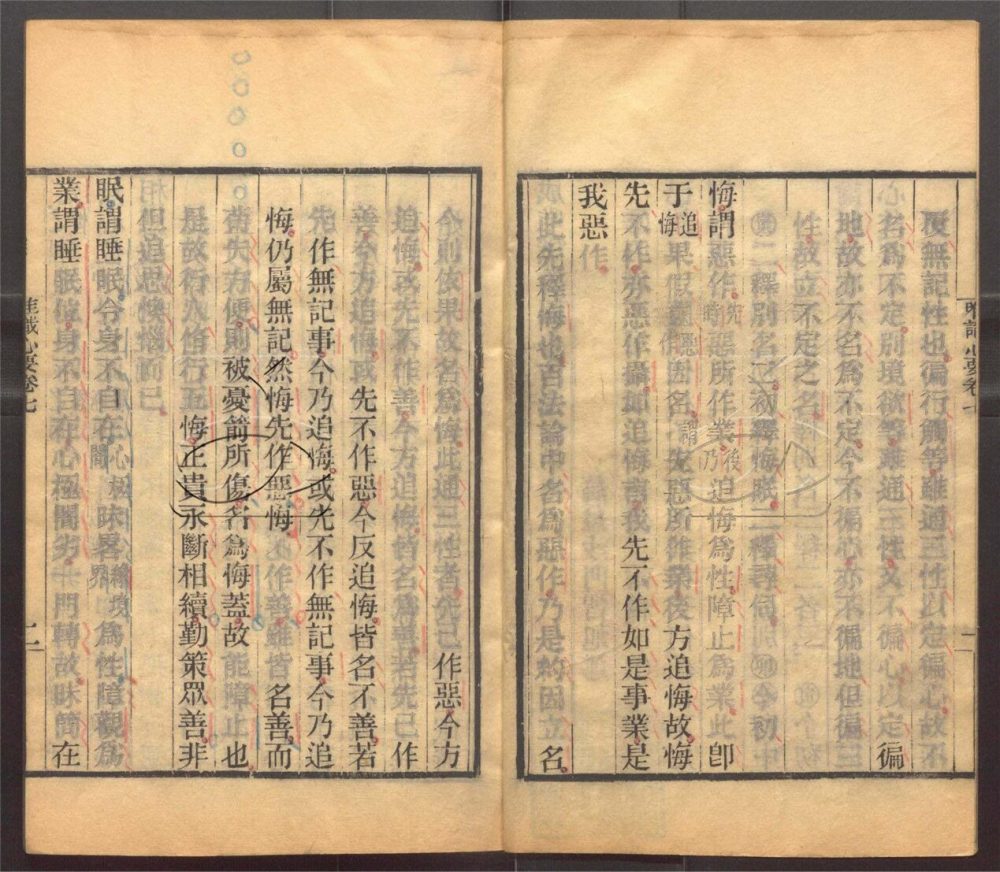 覆無記性也徧行觸等雖通三性以定徧心故不
心者為不定別境欲等雖通三性又不徧心以定徧
地故亦不名為不定今不徧心亦不徧地但徧三
性故立不定之名
二釋別名二初釋悔眠二釋尋伺 今初中
悔謂惡作惡所作業後乃追悔為性障止為業此卽
于追悔果假立因名謂先惡所作業後方追悔故悔
先不作亦惡作攝如追悔言我先不作如是事業是
我惡作
此先釋悔也百法論中名為惡作乃是約因立名
今則依果故名為悔此通三性者先已作惡今方
追悔或先不作善今方追悔皆名為善若先已作
善今方追悔或先不作惡今反追悔皆名不善若
先作無記事今乃追悔或先不作無記事今乃追
悔仍屬無記然悔先作惡悔不作善雖皆名善而
失方便則被憂箭所傷名為悔蓋故能障止也
是故行人悔止貴永斷相續勤策眾善非
但追思懊惱而已
眠謂睡眠令身不自在心極闇昧畧緣境界為性障觀為
業謂睡眠位身不自在心極闇劣一門轉故昧簡在
唯識心要卷七